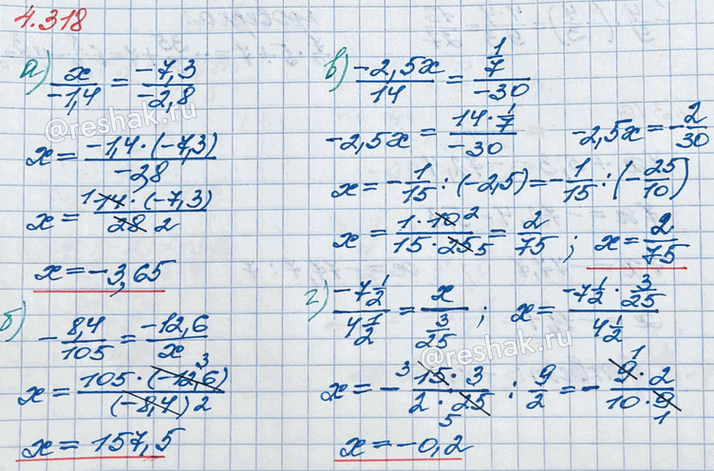 4.318
а) x/-1,4 = -7,3/-2,8
x = -1,4·(-7,3)/-2,8
x = 1 14·(-7,3)/28 2
x = -3,65
б) -8,4/105 = -12,6/x
x = 105·(-12,6) 3/(-8,4) 2
x = 157,5
в) -2,5x/14 = 1/7/-30
-2,5x = 14·1/7/-30 -2,5x = -2/30
x = -1/15 : (-2,5) = -1/15 : (-25/10)
x = 1·10 2/15·25 5 = 2/75 ; x = 2/75
г) -7 1/2/4 1/2 = x/3/25 ; x = -7 1/2 · 3/25/4 1/2
x = - 3 15·3/2·25 5 : 9/2 = - 9 1·2/10·9 1
x = -0,2
©reshak.ru
©reshak.ru